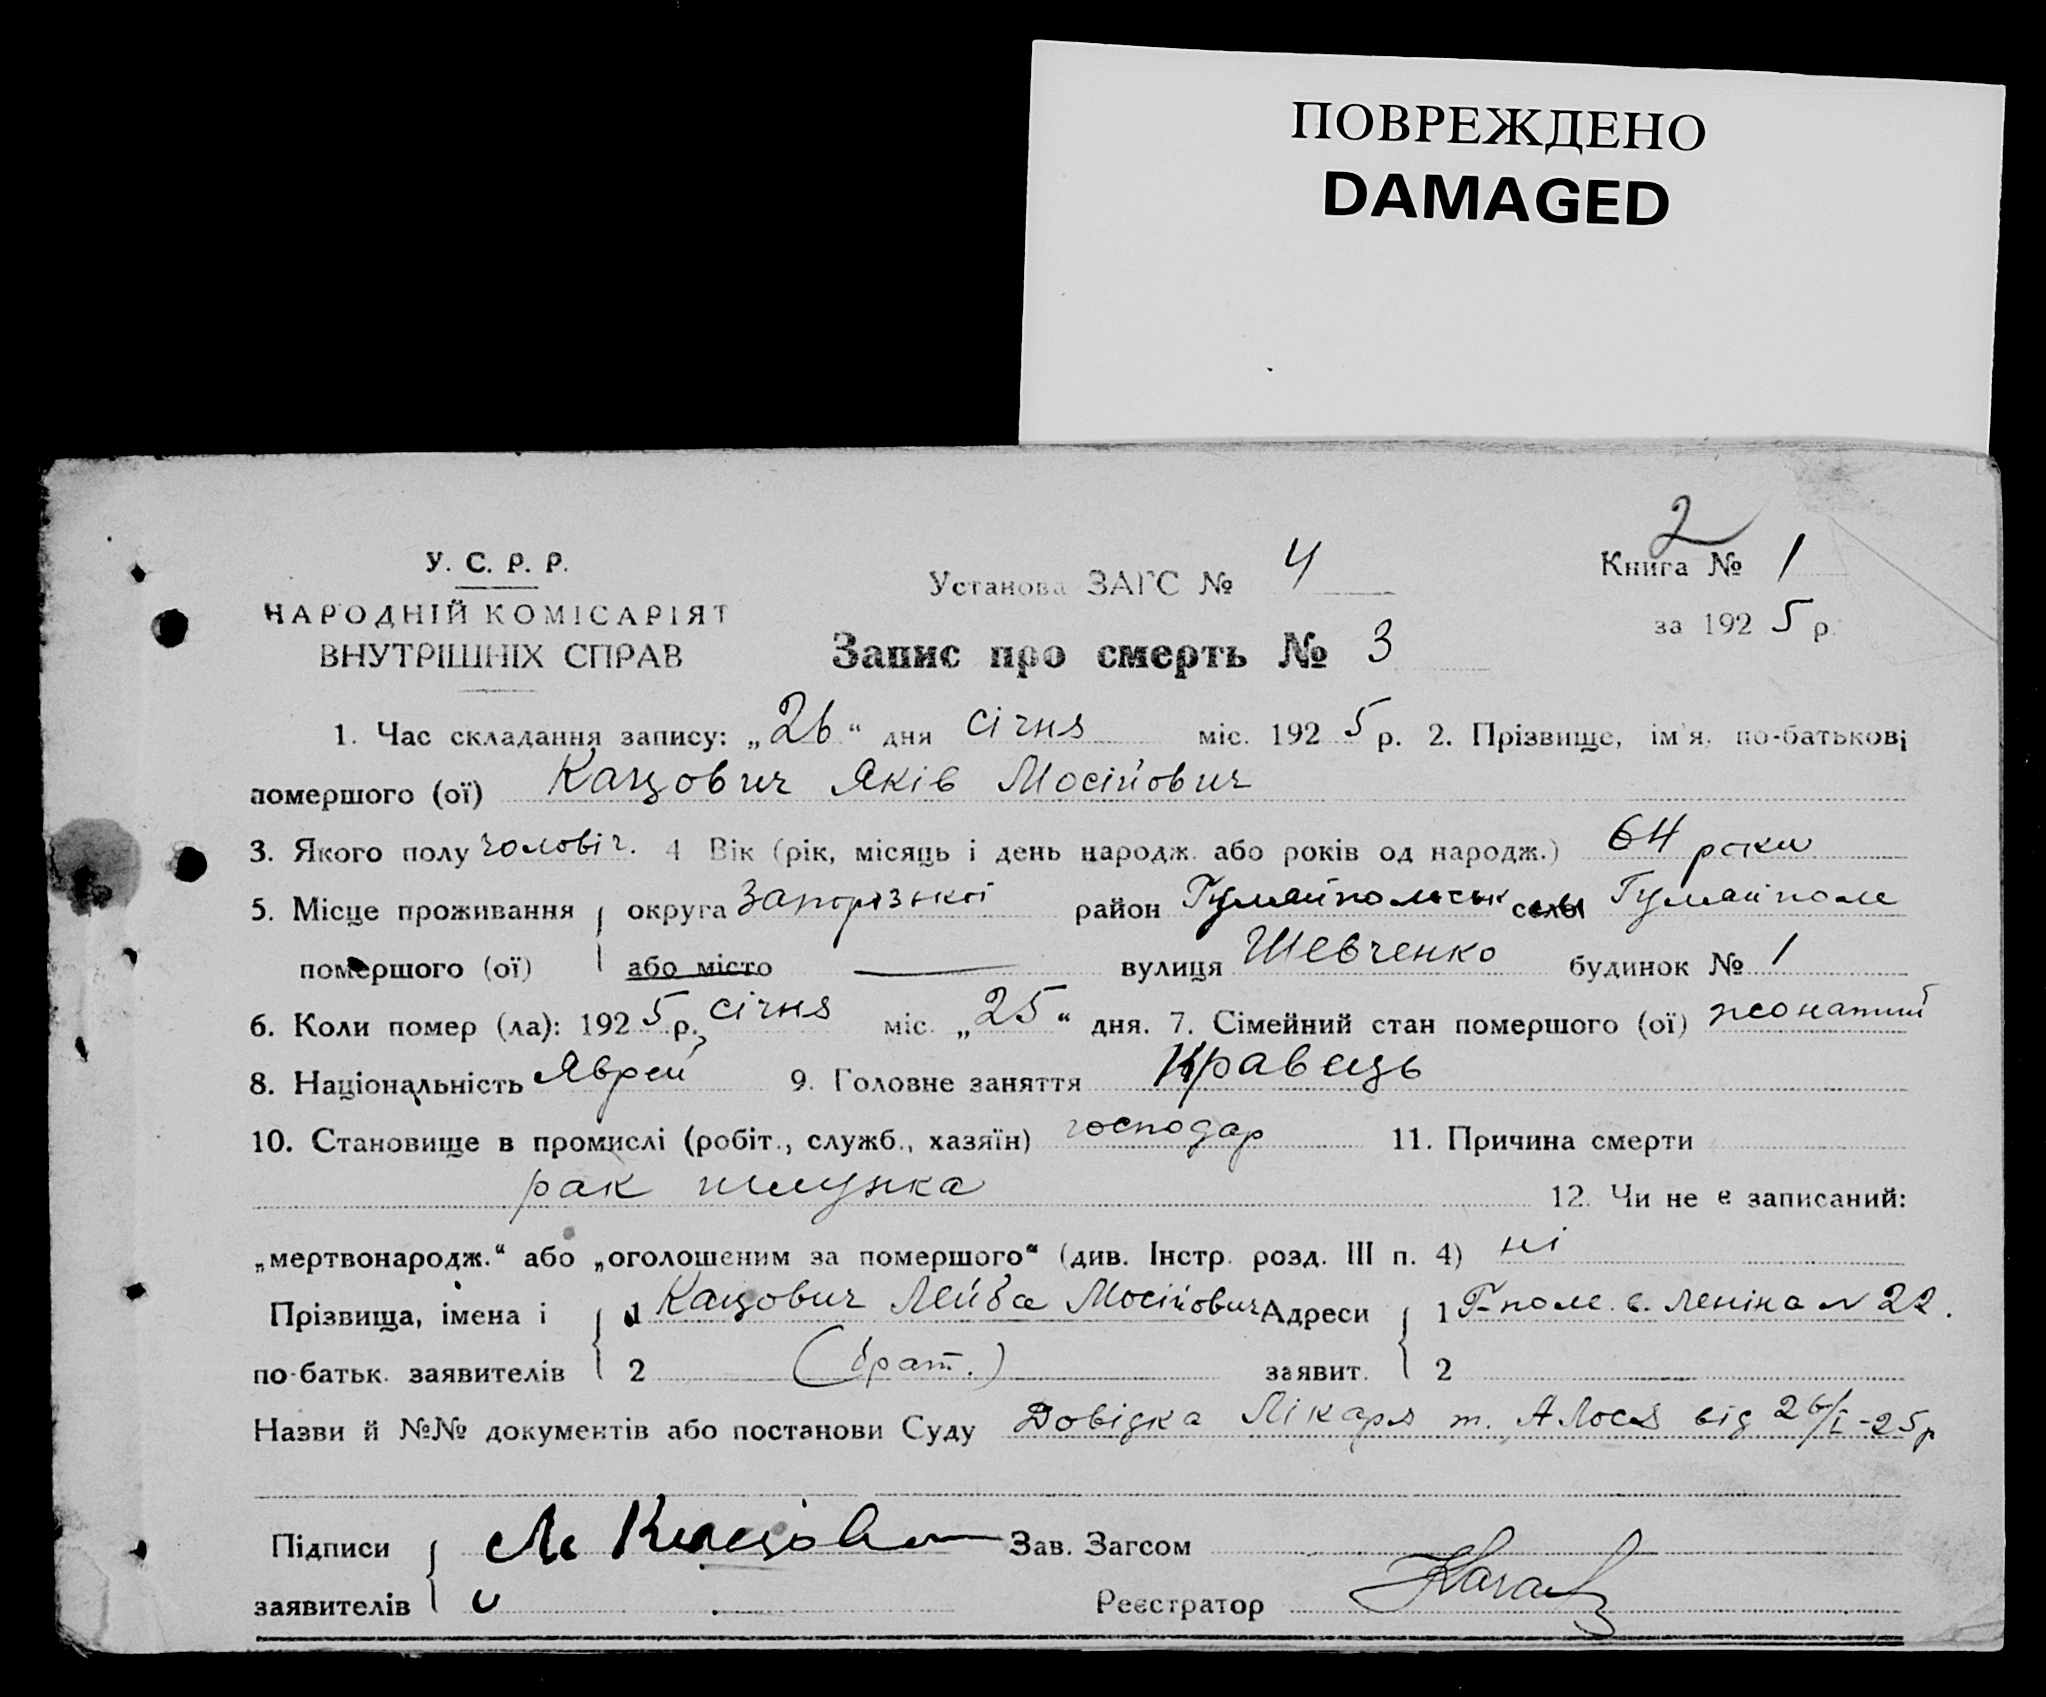 ПОВРЕЖДЕНО
DAMAGED
2
У. С. Р. Р.
НАРОДНІЙ КОМІСАРІЯТ
ВНУТРІШНІХ СПРАВ
Установа ЗАГС № 4
Книга № 1
за 192 5 р.
Запис про смерть № 3
1. Час складання запису: „26“ дня січня міс. 192 5 р. 2. Прізвище, ім'я, по-батькові
помершого (ої) Кацович Яків Мосійович
3. Якого полу чоловіч. 4 Вік (рік, місяць і день народж. або років од народж.) 64 роки
5. Місце проживання округа Запорізької район Гуляйпольськ село Гуляйполе
помершого (ої) або місто — вулиця Шевченко будинок № 1
6. Коли помер (ла): 192 5 р. січня міс. „25“ дня. 7. Сімейний стан помершого (ої) жонатий
8. Національність Яврей 9. Головне заняття Кравець
10. Становище в промислі (робіт., служб., хазяїн) господар 11. Причина смерти
рак шлунка 12. Чи не є записаний:
„мертвонародж.“ або „оголошеним за помершого“ (див. Інстр. розд. III п. 4) ні
Прізвища, імена і 1 Кацович Лейба Мосійович Адреси 1 Г-поле в. Леніна № 22.
по-батьк. заявителів 2 (брат.) заявит. 2
Назви й №№ документів або постанови Суду Довідка Лікаря т. Алося від 26/I-25р
Підписи Л Кацови Зав. Загсом
заявителів Реєстратор